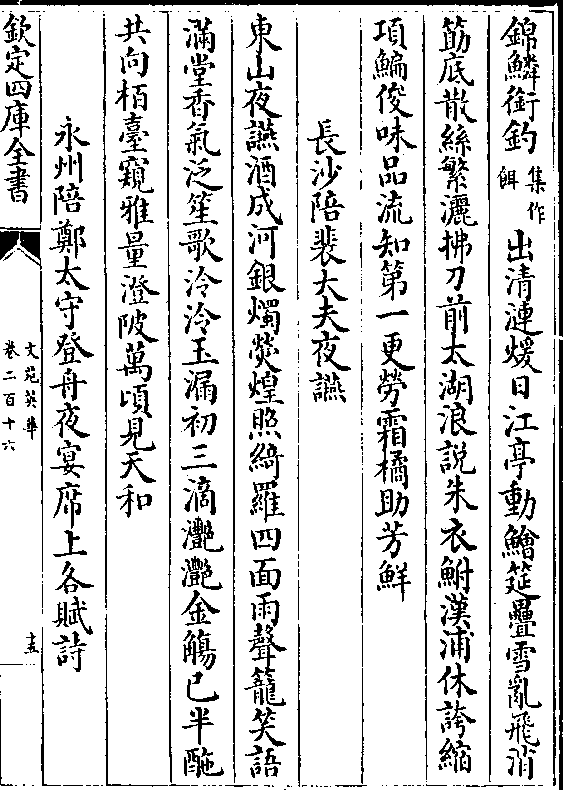 錦鱗銜釣集作餌出清漣煖日江亭動鱠筵疊雪亂飛消
筯底散絲繁灑拂刀前太湖浪說朱衣鮒漢浦休誇縮
項鯿俊味品流知第一更勞霜橘助芳鮮
長沙陪裴大夫夜讌
東山夜讌酒成河銀燭熒煌照綺羅四面雨聲籠笑語
滿堂香氣泛笙歌泠泠玉漏初三滴灔灔金觴已半酡
共向栢臺窺雅量澄陂萬頃見天和
永州陪鄭太守登舟夜宴席上各賦詩
欽定四庫全書
文苑英華
卷二百十六
十五